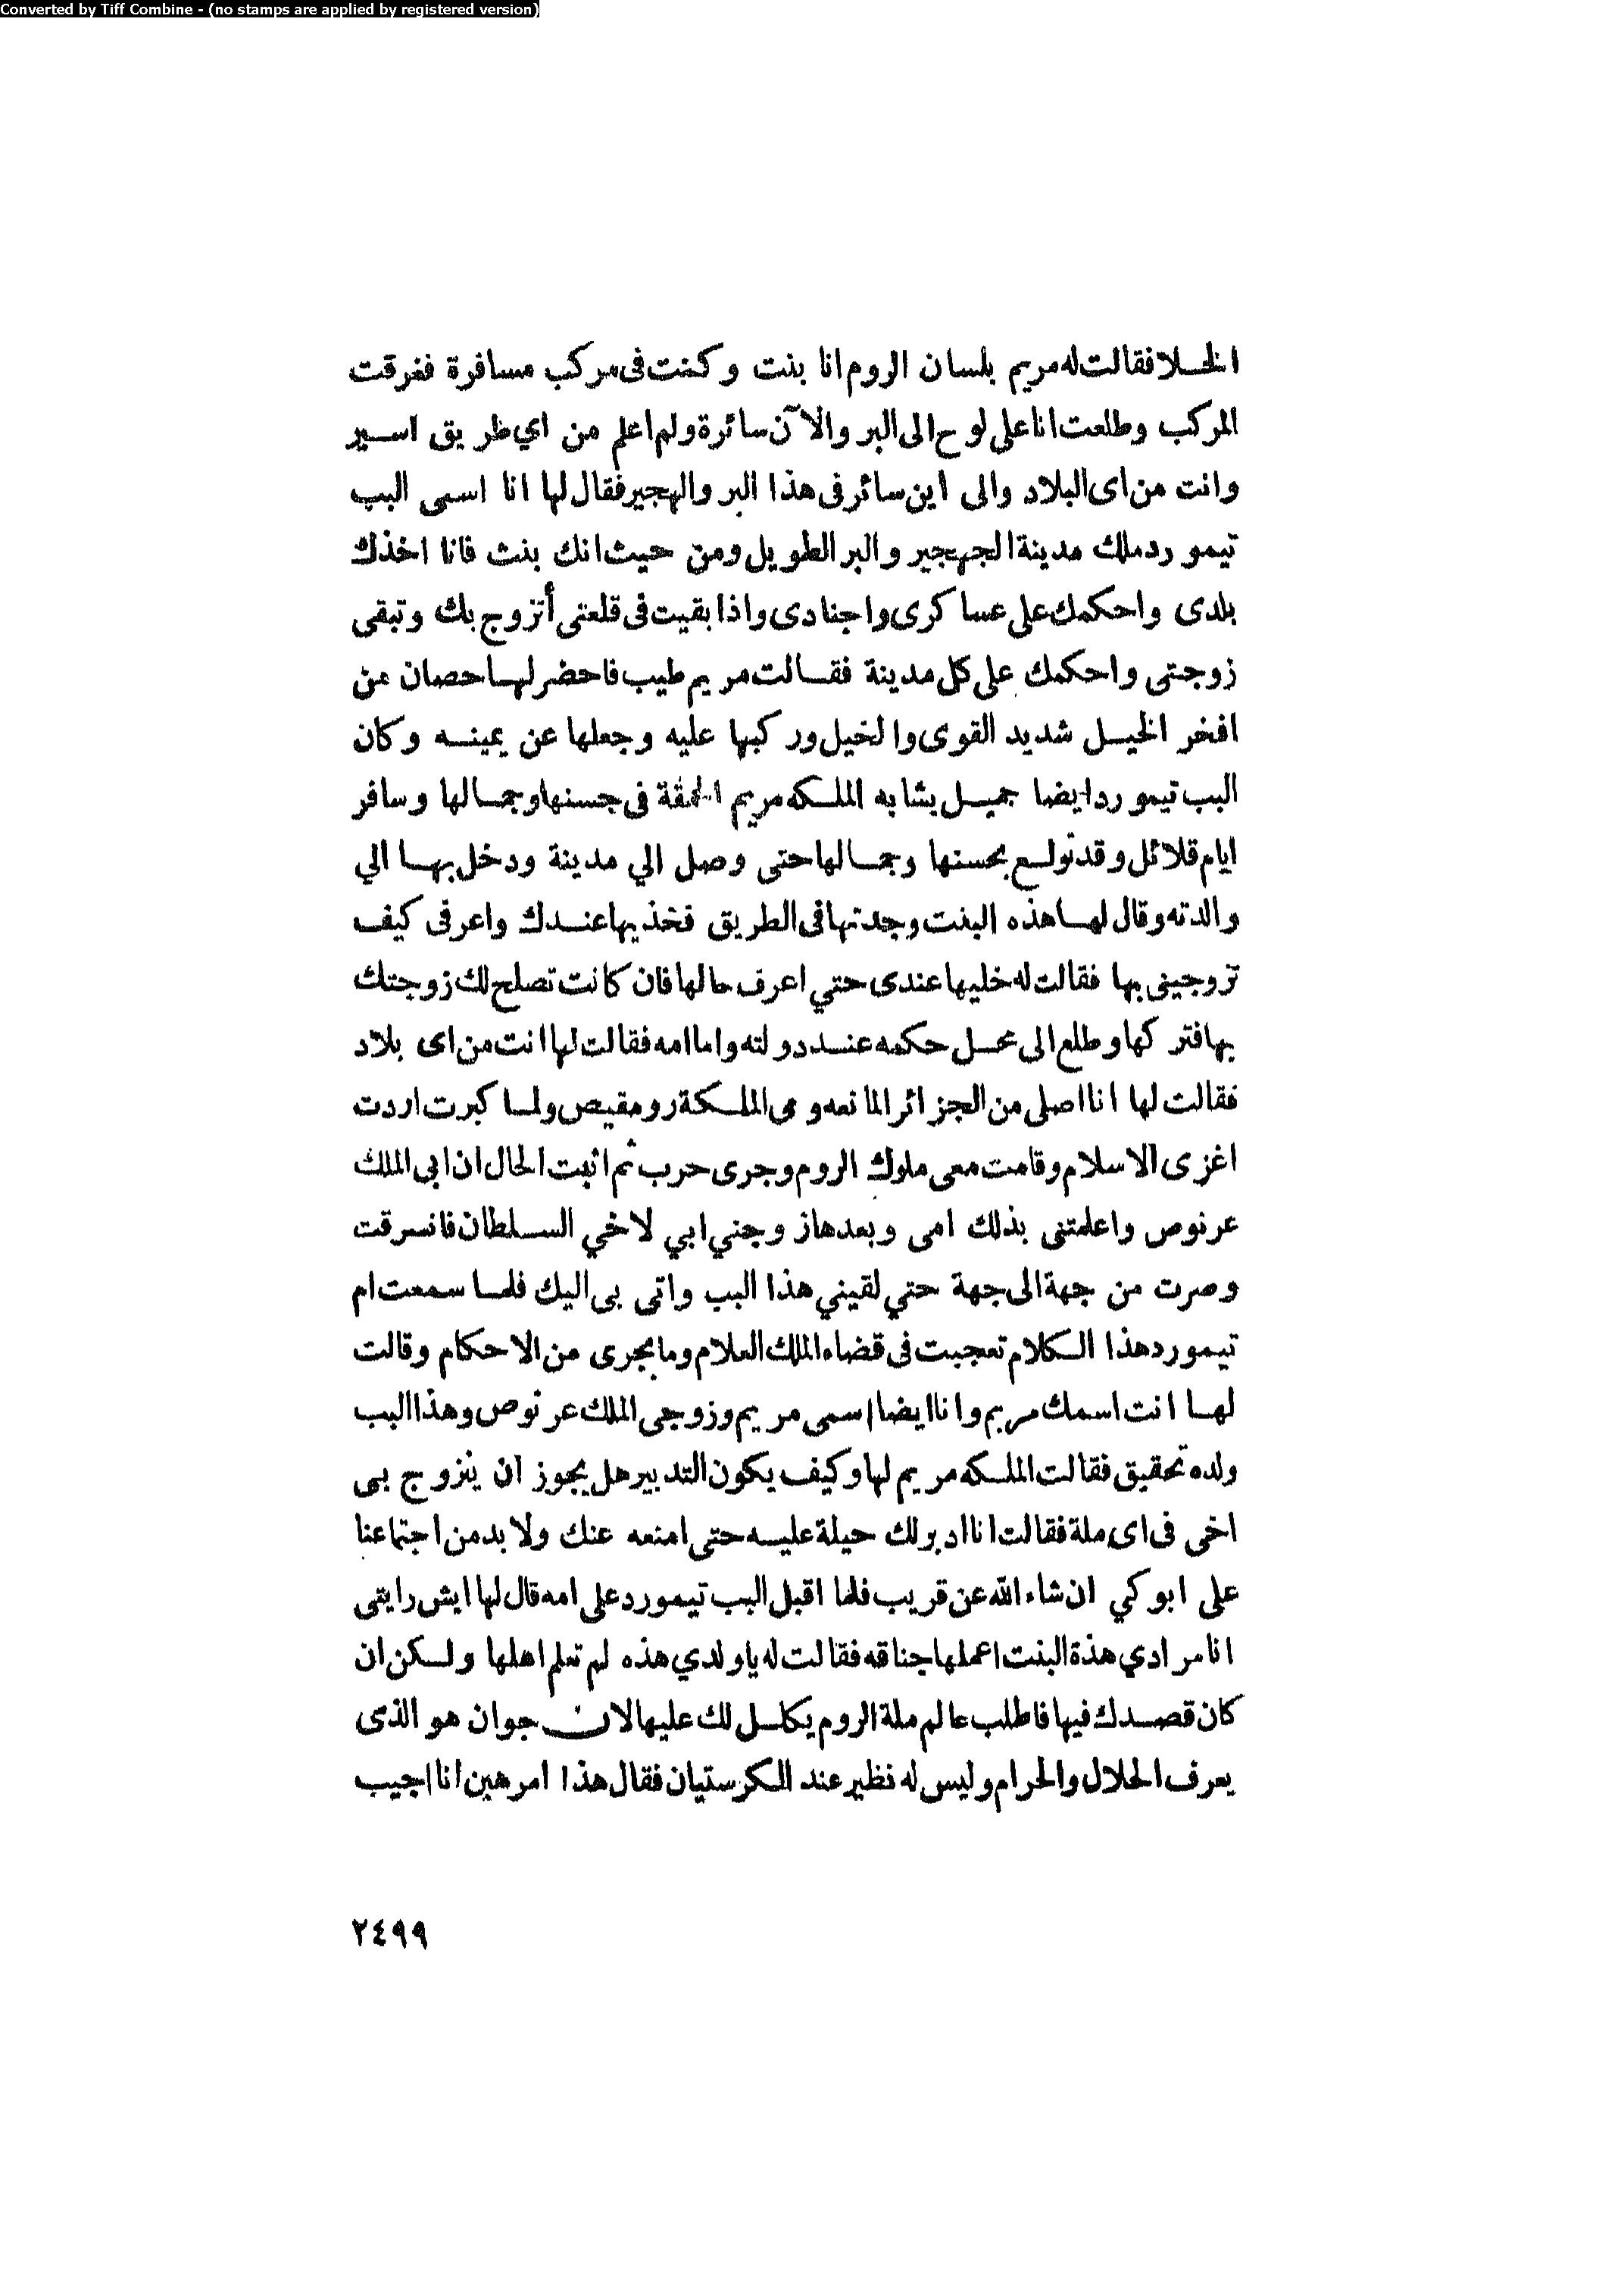 Converted by Tiff Combine - (no stamps are applied by registered version)
الخلا فقالت له مريم بلسان الروم انا بنت وكنت فى مركب مسافرة فغرقت
المركب وطلعت انا على لوح الى البر والآن سائرة ولم اعلم من اي طريق اسير
وانت من اى البلاد والى اين سائر فى هذا البر والهجير فقال لها انا اسمى البب
تيمورد ملك مدينة الجهجير والبر الطويل ومن حيث انك بنت فانا اخذك
بلدى واحكمك على عساكرى واجنادى واذا بقيت فى قلعتى أتزوج بك وتبقى
زوجتى واحكمك على كل مدينة فقالت مريم طيب فاحضر لها حصان من
افخر الخيل شديد القوى والخيل وركبها عليه وجعلها عن يمينه وكان
البب تيمورد ايضا جميل يشابه الملكه مريم الحمقة فى حسنها وجمالها وسافر
ايام قلائل وقد تولع بحسنها وجمالها حتى وصل الي مدينة ودخل بها الي
والدته وقال لها هذه البنت وجدتها فى الطريق فخذيها عندك واعرفى كيف
تزوجينى بها فقالت له خليها عندى حتي اعرف حالها فان كانت تصلح لك زوجتك
بها فتركها وطلع الى محل حكمه عند دولته واما امه فقالت لها انت من اى بلاد
فقالت لها انا اصلى من الجزائر المانعه وهى الملكة رومقيص ولما كبرت اردت
اغزى الاسلام وقامت معى ملوك الروم وجرى حرب ثم اثبت الحال ان ابى الملك
عرنوص واعلمتنى بذلك امى وبعدها زوجني ابي لاخي السلطان فانسرقت
وصرت من جهة الى جهة حتي لقيني هذا البب واتى بى اليك فلما سمعت ام
تيمورد هذا الكلام تعجبت فى قضاء الملك العلام وما يجرى من الاحكام وقالت
لها انت اسمك مريم وانا ايضا اسمى مريم وزوجى الملك عرنوص وهذا البب
ولده تحقيق فقالت الملكه مريم لها وكيف يكون التدبير هل يجوز ان يتزوج بى
اخى فى اى ملة فقالت انا ادبر لك حيلة عليه حتى امنعه عنك ولا بد من اجتماعنا
على ابوكي ان شاء الله عن قريب فلما اقبل البب تيمورد على امه قال لها ايش رايتى
انا مرادي هذة البنت اعملها جناقه فقالت له يا ولدي هذه لم تعلم اهلها ولكن ان
كان قصدك فيها فاطلب عالم ملة الروم يكلل لك عليها لان جوان هو الذى
يعرف الحلال والحرام وليس له نظير عند الكرستيان فقال هذا امر هين انا اجيب
٢٤٩٩